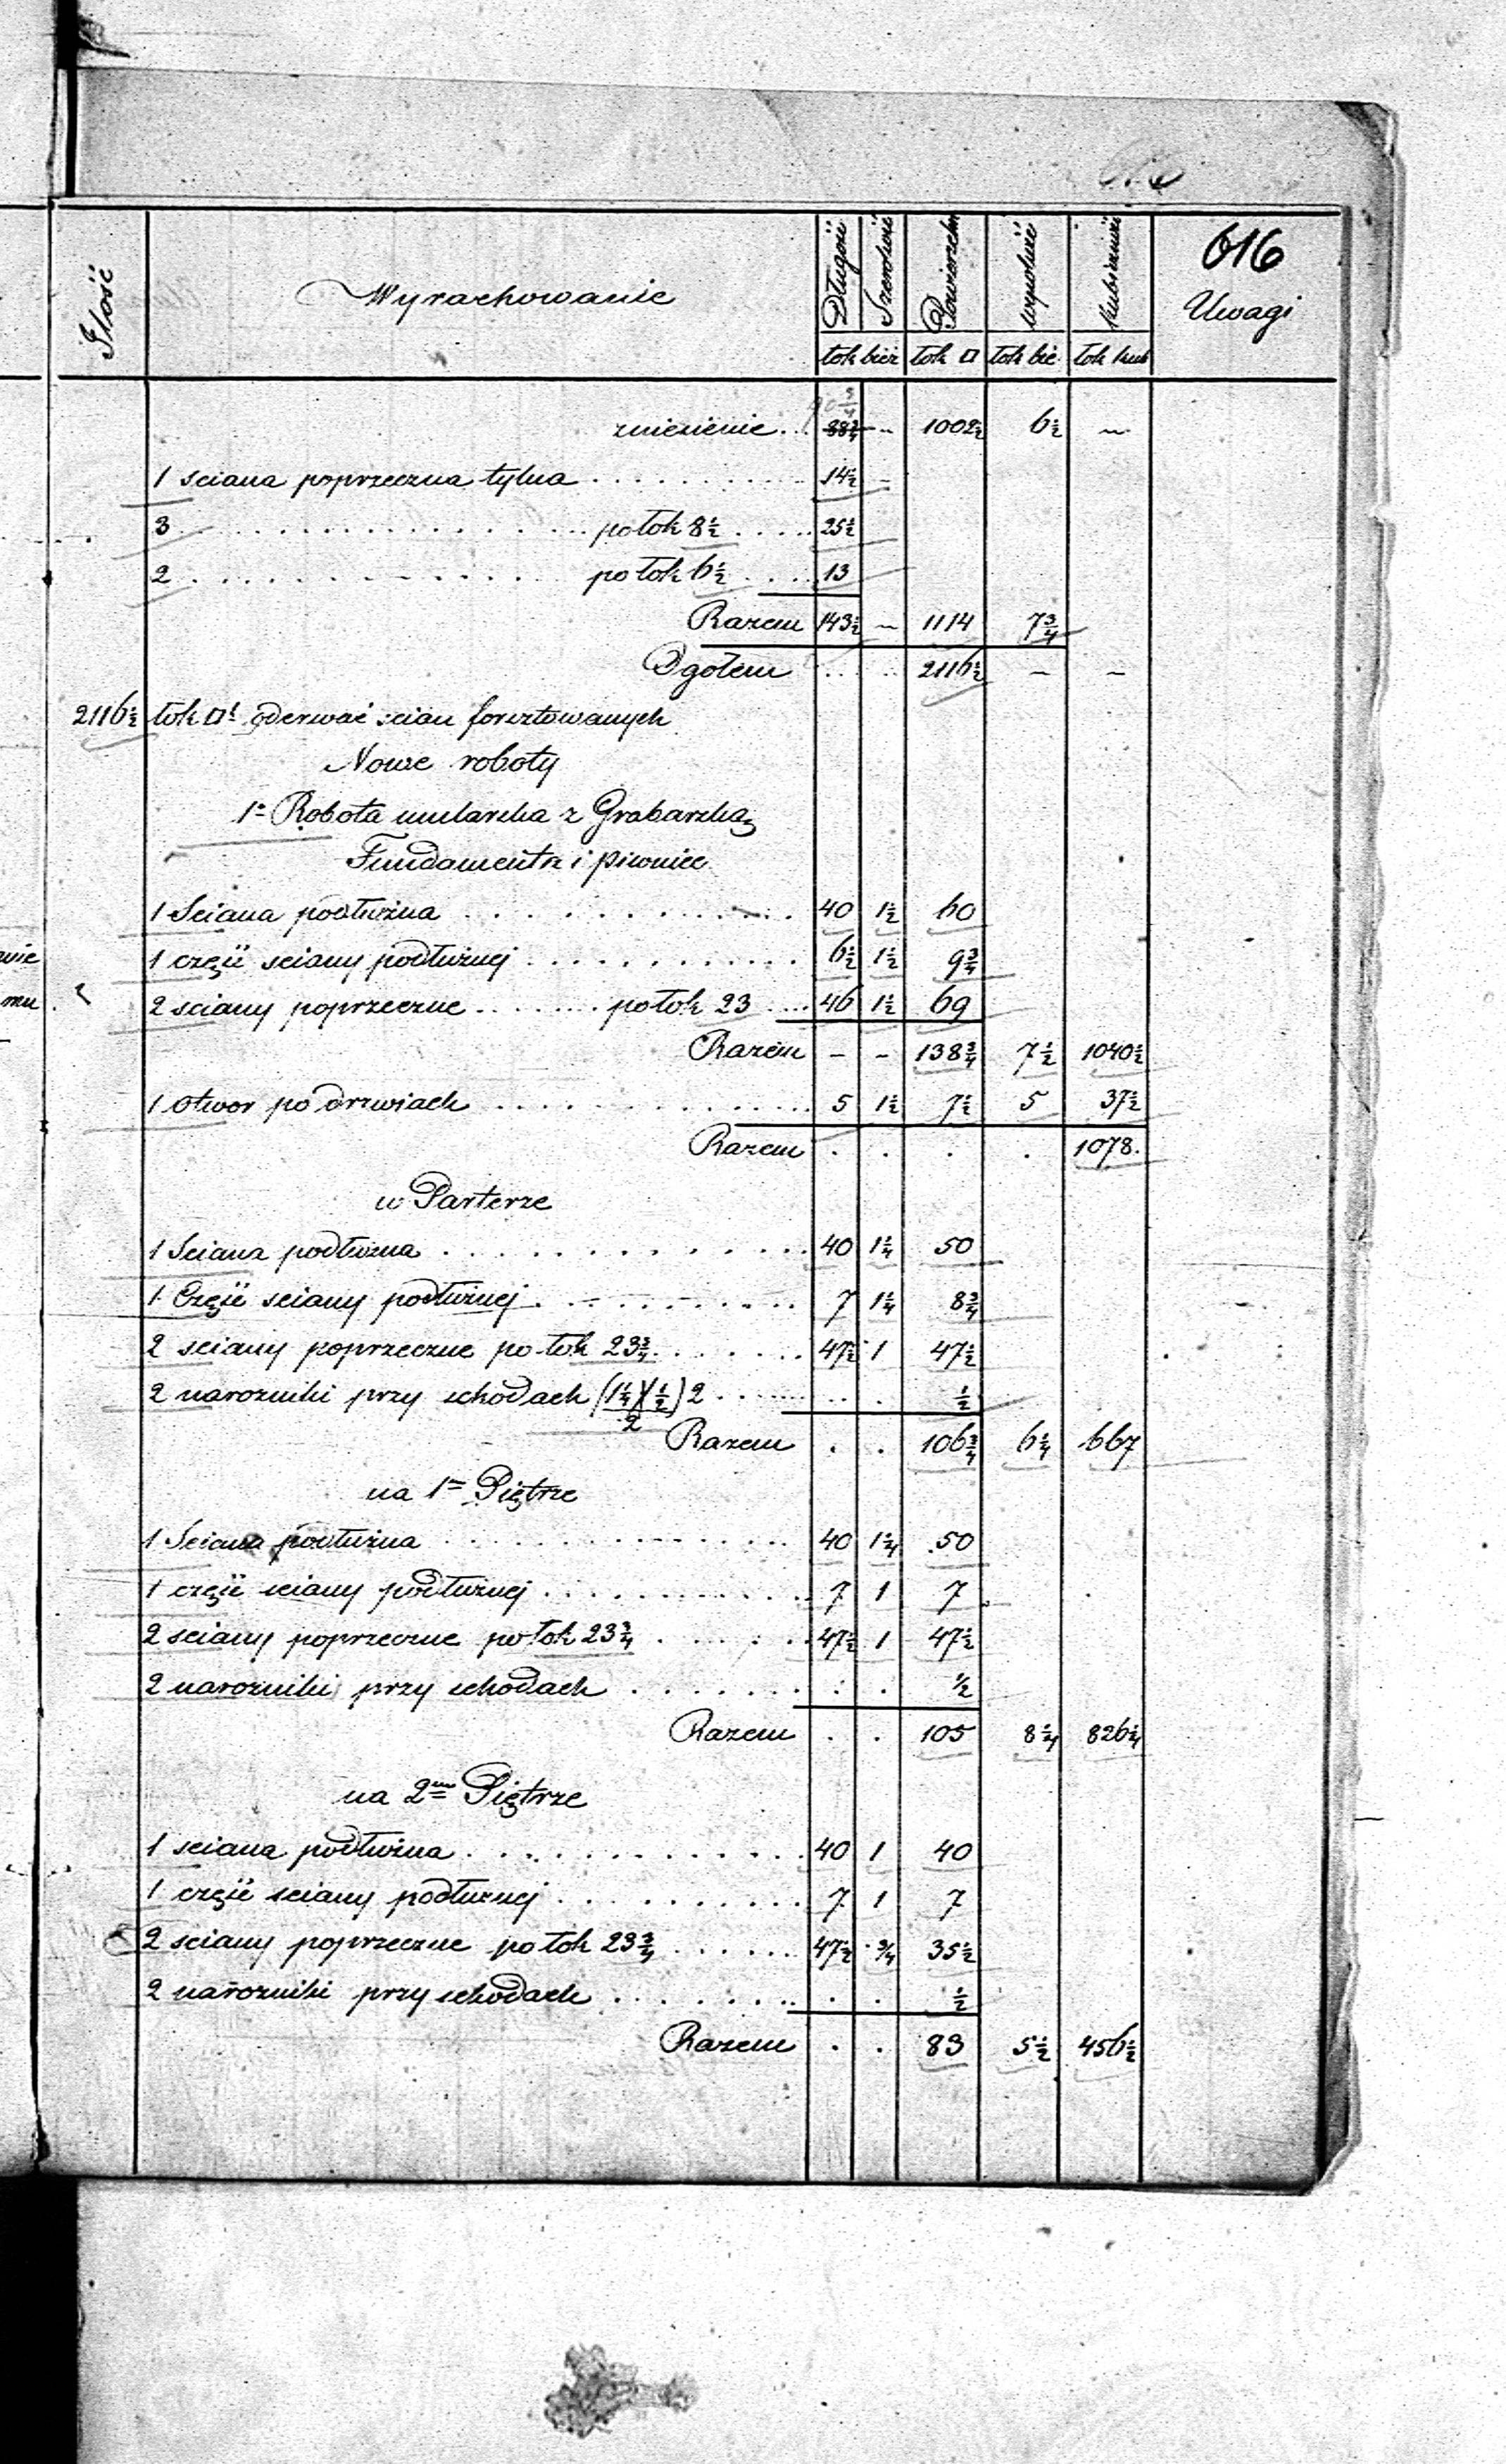 616
Ilość Wyrachowanie Długość Szerokość Powierzchn wysokość kubiczność Uwagi
łok bież łok □ łok bie. łok kub
90 3/4
zniesienie . . 88 3/4 – 1002 1/2 6 1/2 –
1 sciana poprzeczna tylna . . . 14 1/2 –
3 . . . po łok 8 1/2 . . . 25 1/2
2 . . . po łok 6 1/2 . . . 13
Razem 143 1/2 – 1114 7 3/4
Ogołem . . . . 2116 1/2 – –
2116 1/2 łok □ł oderwać scian forsztowanych
Nowe roboty
1= Robota mularska z Grabarską
Fundamenta i piwnice
1 Sciana podłużna . . . 40 1 1/2 60
1 część sciany podłużnej . . . 6 1/2 1 1/2 9 3/4
2 sciany poprzeczne . . . po łok 23 . . . 46 1 1/2 69
Razem – – 138 3/4 7 1/2 1040 1/2
1 otwor po drzwiach . . . 5 1 1/2 7 1/2 5 37 1/2
Razem . . . . 1078.
w Parterze
1 Sciana podłużna . . . 40 1 1/4 50
1 Część sciany podłużnej . . . 7 1 1/4 8 3/4
2 sciany poprzeczne po łok 23 3/4 . . . 47 1/2 1 47 1/2
2 narozniki przy schodach (1 1/4)(1/2)2 / 2 . . . 1/2
Razem . . 106 3/4 6 1/4 667
na 1m Piętrze
1 Sciana podłużna . . . 40 1 1/4 50
1 część sciany podłużnej . . . 7 1 7
2 sciany poprzeczne po łok 23 3/4 . . . 47 1/2 1 47 1/2
2 narozniki przy schodach . . . 1/2
Razem . . 105 8 1/4 826 1/4
na 2m Piętrze
1 sciana podłużna . . . 40 1 40
1 część sciany podłużnej . . . 7 1 7
2 sciany poprzeczne po łok 23 3/4 . . . 47 1/2 3/4 35 1/2
2 narozniki przy schodach . . . 1/2
Razem . . 83 5 1/2 456 1/2